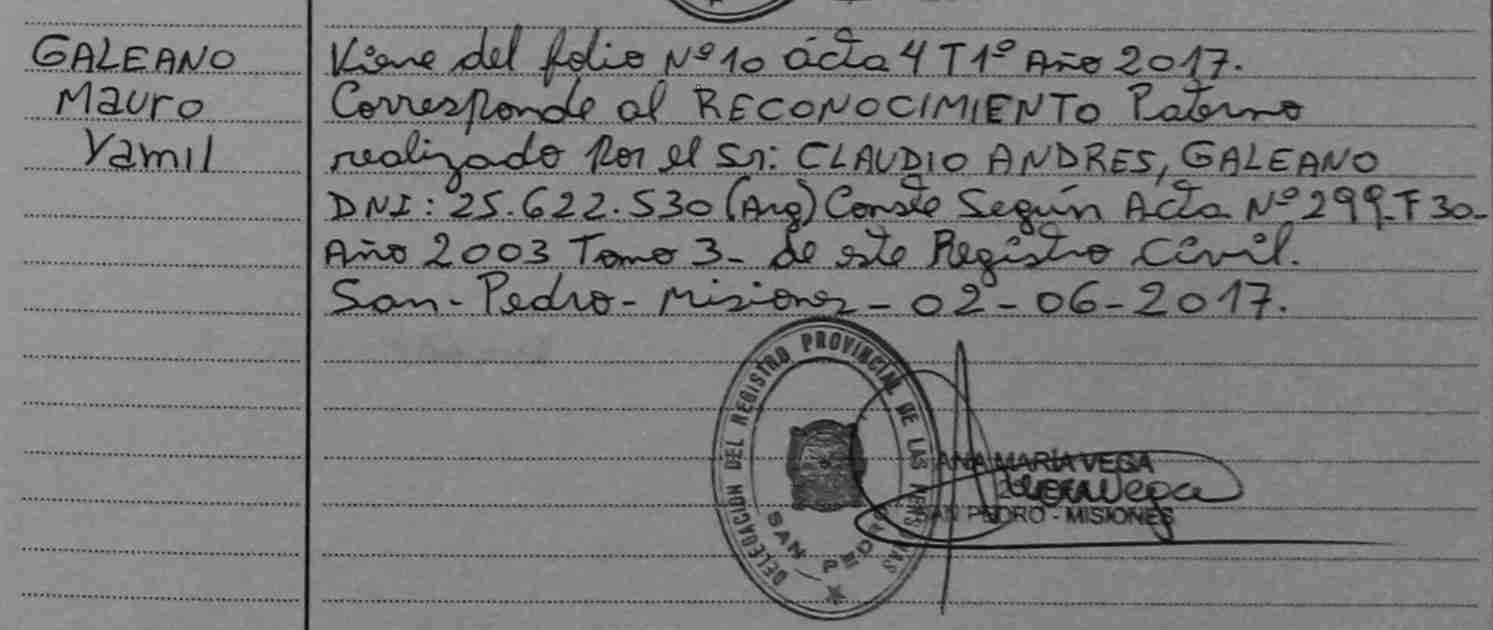 GALEANO
Mauro
Yamil
Viene del folio Nº 10 acta 4 T 1º Año 2017.
Corresponde al RECONOCIMIENTO Paterno
realizado Por el Sr: CLAUDIO ANDRES, GALEANO
DNI: 25.622.530 (Arg) Conste Según Acta Nº 299-F 30-
Año 2003 Tomo 3- de este Registro Civil.
San-Pedro-Misiones-02-06-2017.
DELEGACION DEL REGISTRO PROVINCIAL DE LAS PERSONAS
SAN PEDRO
ANA MARIA VEGA
SAN PEDRO - MISIONES